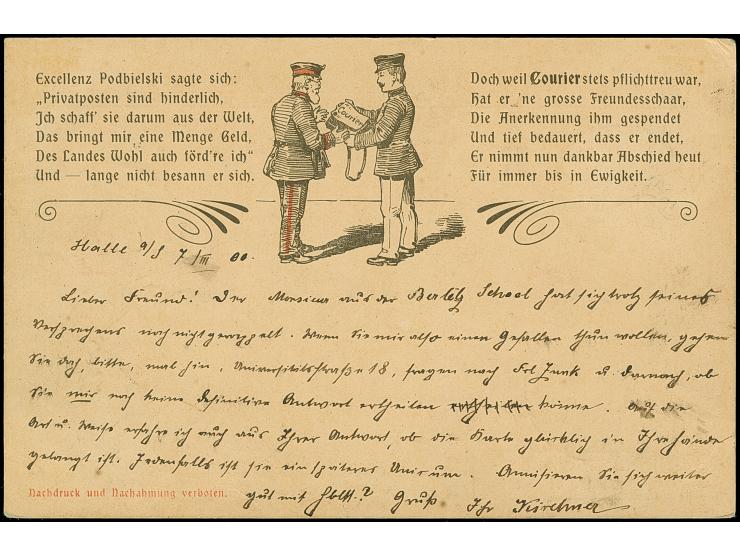 Excellenz Podbielski sagte sich:
„Privatposten sind hinderlich,
Ich schaff' sie darum aus der Welt,
Das bringt mir eine Menge Geld,
Des Landes Wohl auch förd're ich“
Und — lange nicht besann er sich.
Courier
Doch weil Courier stets pflichttreu war,
Hat er 'ne grosse Freundesschaar,
Die Anerkennung ihm gespendet
Und tief bedauert, dass er endet,
Er nimmt nun dankbar Abschied heut
Für immer bis in Ewigkeit.
Halle a/S 7/III 00.
Lieber Freund! Der Monsieur aus der Berlitz School hat sich trotz seines
Versprechens noch nicht gerappelt. Wenn Sie mir also einen Gefallen thun wollen, gehen
Sie doch, bitte, mal hin, Universitätsstraße 18, fragen nach Frl Junk u. darnach, ob
Sie mir noch keine definitive Antwort ertheilen könne. Auf die
Art u. Weise erfahre ich auch aus Ihrer Antwort, ob die Karte glücklich in Ihre Hände
gelangt ist. Jedenfalls ist sie ein späteres Unicum. Amüsieren Sie sich weiter
gut mit Gruß Ihr Kirchner
Nachdruck und Nachahmung verboten.